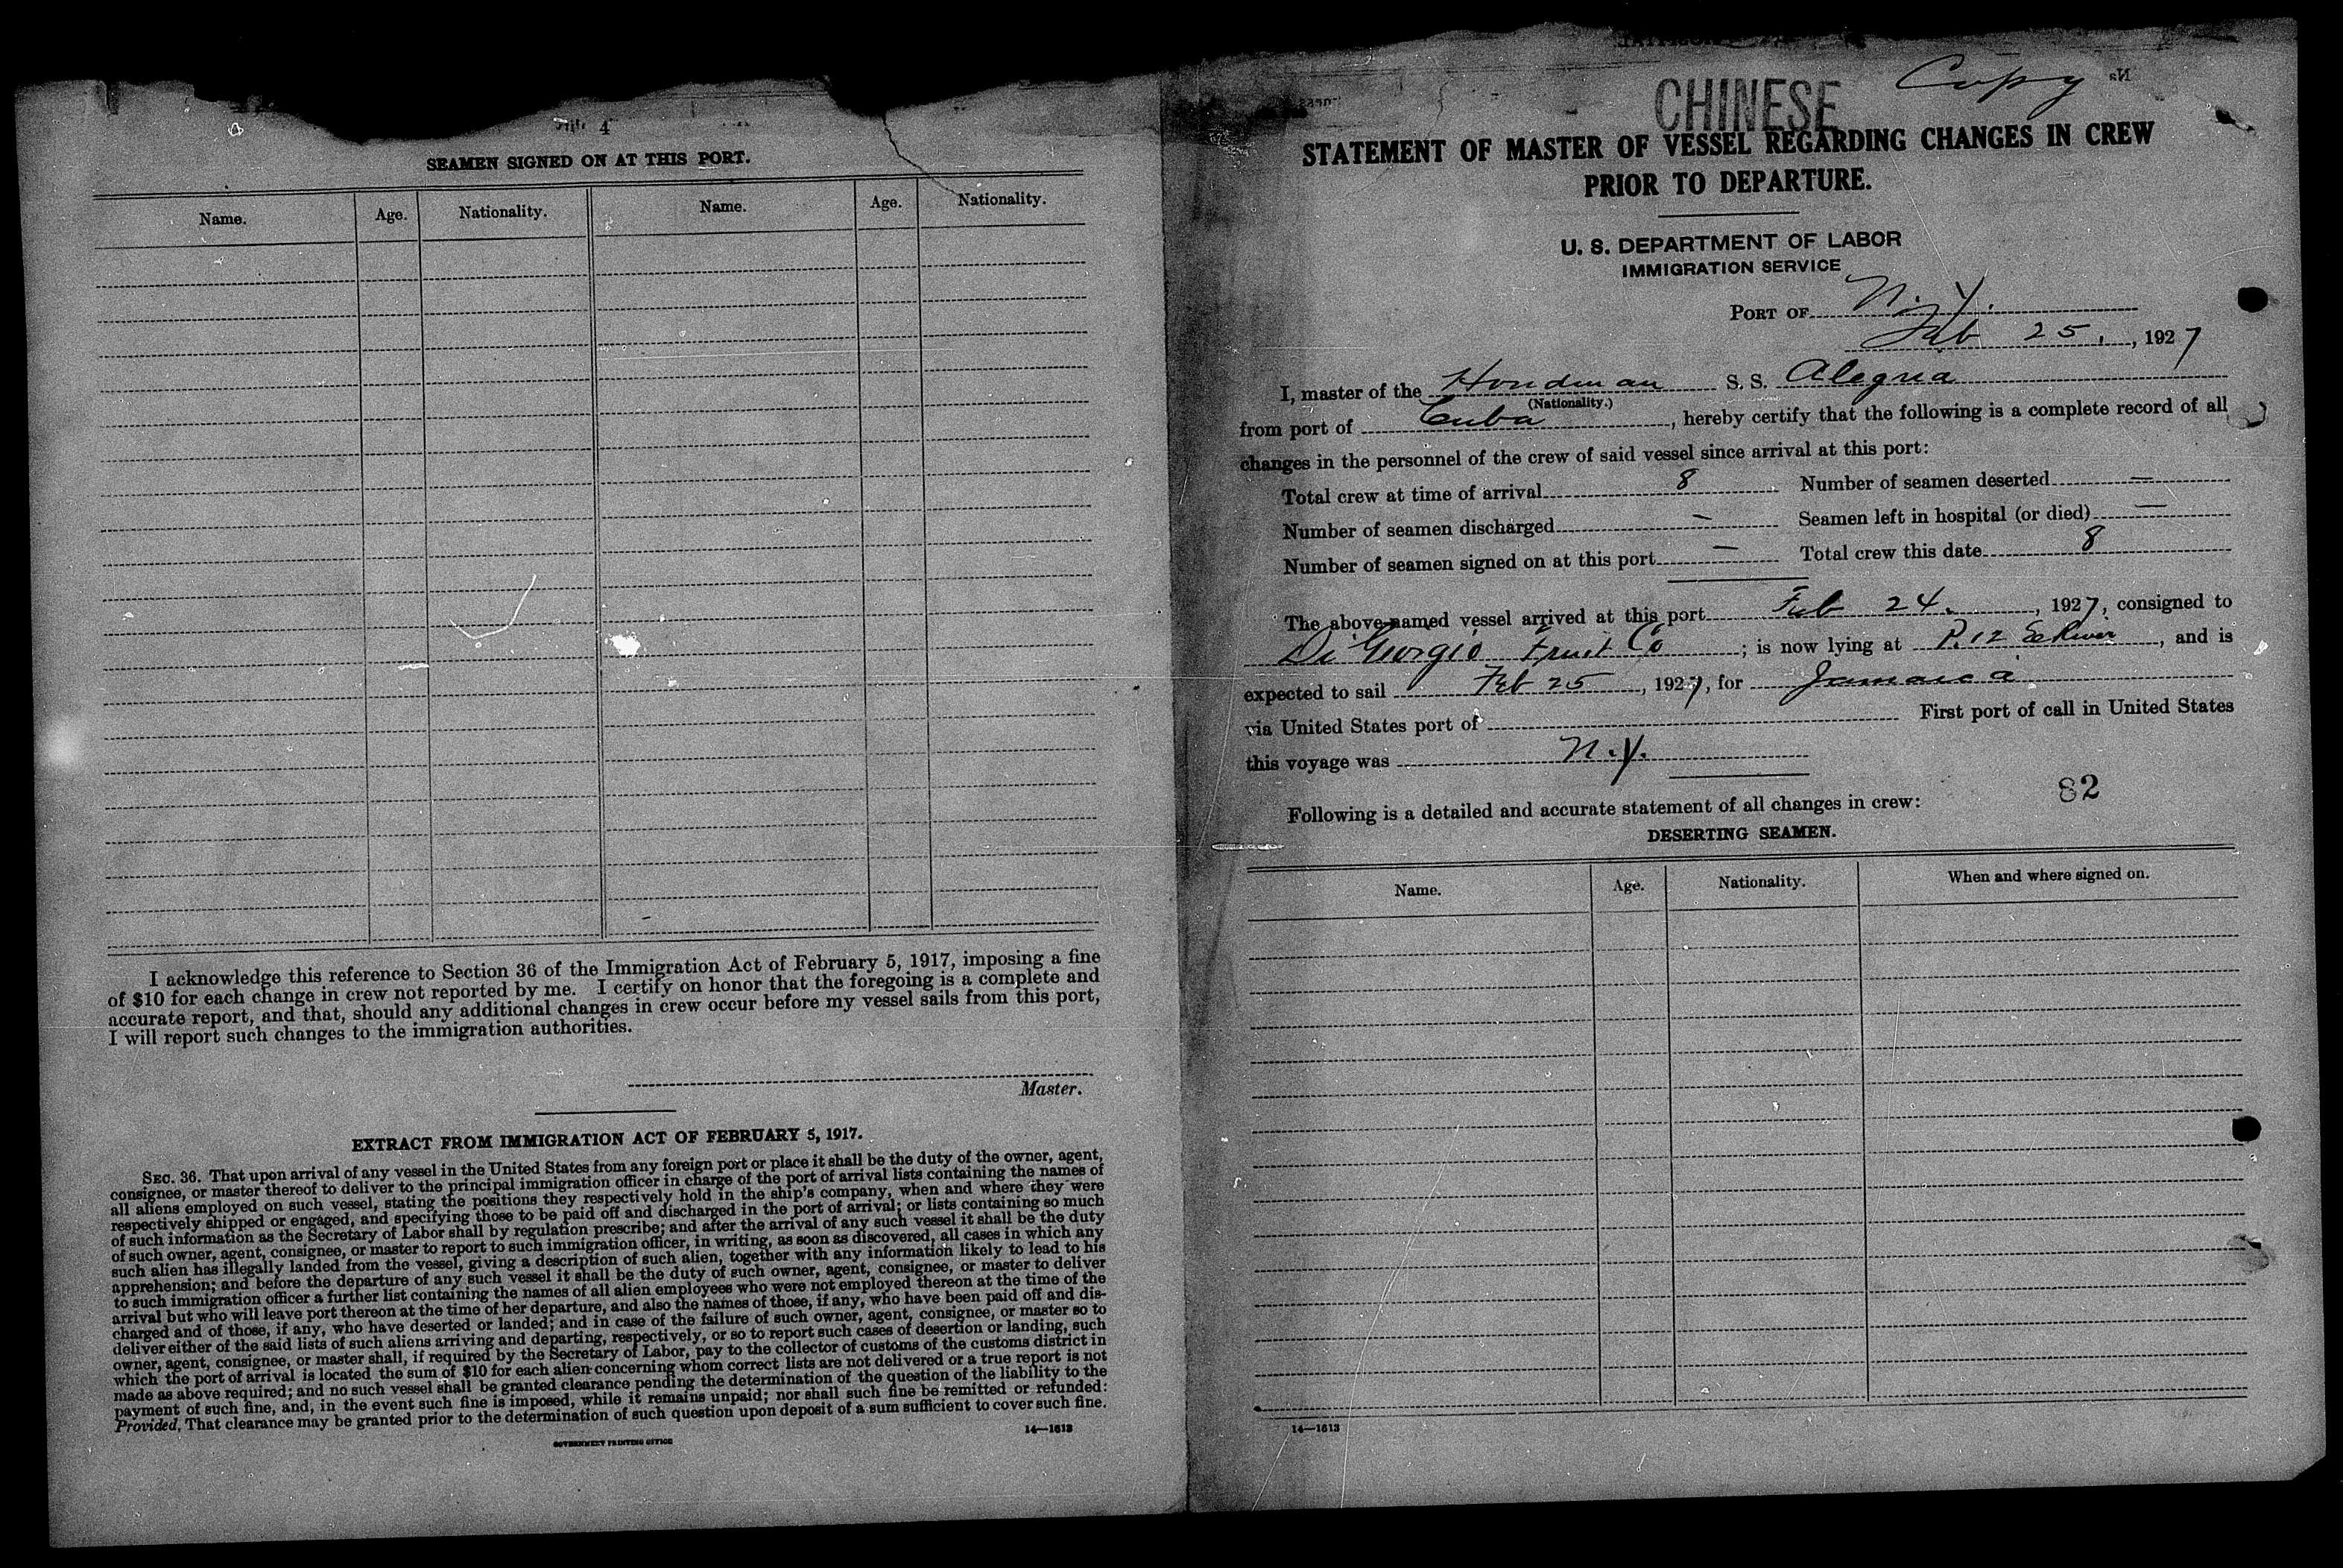 4
SEAMEN SIGNED ON AT THIS PORT.
Name. Age. Nationality. Name. Age. Nationality.
I acknowledge this reference to Section 36 of the Immigration Act of February 5, 1917, imposing a fine
of $10 for each change in crew not reported by me. I certify on honor that the foregoing is a complete and
accurate report, and that, should any additional changes in crew occur before my vessel sails from this port,
I will report such changes to the immigration authorities.
Master.
EXTRACT FROM IMMIGRATION ACT OF FEBRUARY 5, 1917.
SEC. 36. That upon arrival of any vessel in the United States from any foreign port or place it shall be the duty of the owner, agent,
consignee, or master thereof to deliver to the principal immigration officer in charge of the port of arrival lists containing the names of
all aliens employed on such vessel, stating the positions they respectively hold in the ship's company, when and where they were
respectively shipped or engaged, and specifying those to be paid off and discharged in the port of arrival; or lists containing so much
of such information as the Secretary of Labor shall by regulation prescribe; and after the arrival of any such vessel it shall be the duty
of such owner, agent, consignee, or master to report to such immigration officer, in writing, as soon as discovered, all cases in which any
such alien has illegally landed from the vessel, giving a description of such alien, together with any information likely to lead to his
apprehension; and before the departure of any such vessel it shall be the duty of such owner, agent, consignee, or master to deliver
to such immigration officer a further list containing the names of all alien employees who were not employed thereon at the time of the
arrival but who will leave port thereon at the time of her departure, and also the names of those, if any, who have been paid off and dis-
charged and of those, if any, who have deserted or landed; and in case of the failure of such owner, agent, consignee, or master so to
deliver either of the said lists of such aliens arriving and departing, respectively, or so to report such cases of desertion or landing, such
owner, agent, consignee, or master shall, if required by the Secretary of Labor, pay to the collector of customs of the customs district in
which the port of arrival is located the sum of $10 for each alien concerning whom correct lists are not delivered or a true report is not
made as above required; and no such vessel shall be granted clearance pending the determination of the question of the liability to the
payment of such fine, and, in the event such fine is imposed, while it remains unpaid; nor shall such fine be remitted or refunded:
Provided, That clearance may be granted prior to the determination of such question upon deposit of a sum sufficient to cover such fine.
14—1613
GOVERNMENT PRINTING OFFICE
Copy
CHINESE
STATEMENT OF MASTER OF VESSEL REGARDING CHANGES IN CREW
PRIOR TO DEPARTURE.
U. S. DEPARTMENT OF LABOR
IMMIGRATION SERVICE
PORT OF N.Y.
Feb 25, , 1927
I, master of the Honduran S. S. Alegria
(Nationality.)
from port of Cuba, hereby certify that the following is a complete record of all
changes in the personnel of the crew of said vessel since arrival at this port:
Total crew at time of arrival 8 Number of seamen deserted —
Number of seamen discharged — Seamen left in hospital (or died) —
Number of seamen signed on at this port — Total crew this date 8
The above-named vessel arrived at this port Feb 24, , 1927, consigned to
Di Giorgio Fruit Co ; is now lying at P. 12 E River, and is
expected to sail Feb 25, 1927, for Jamaica
via United States port of First port of call in United States
this voyage was N.Y.
82
Following is a detailed and accurate statement of all changes in crew:
DESERTING SEAMEN.
Name. Age. Nationality. When and where signed on.
14—1613